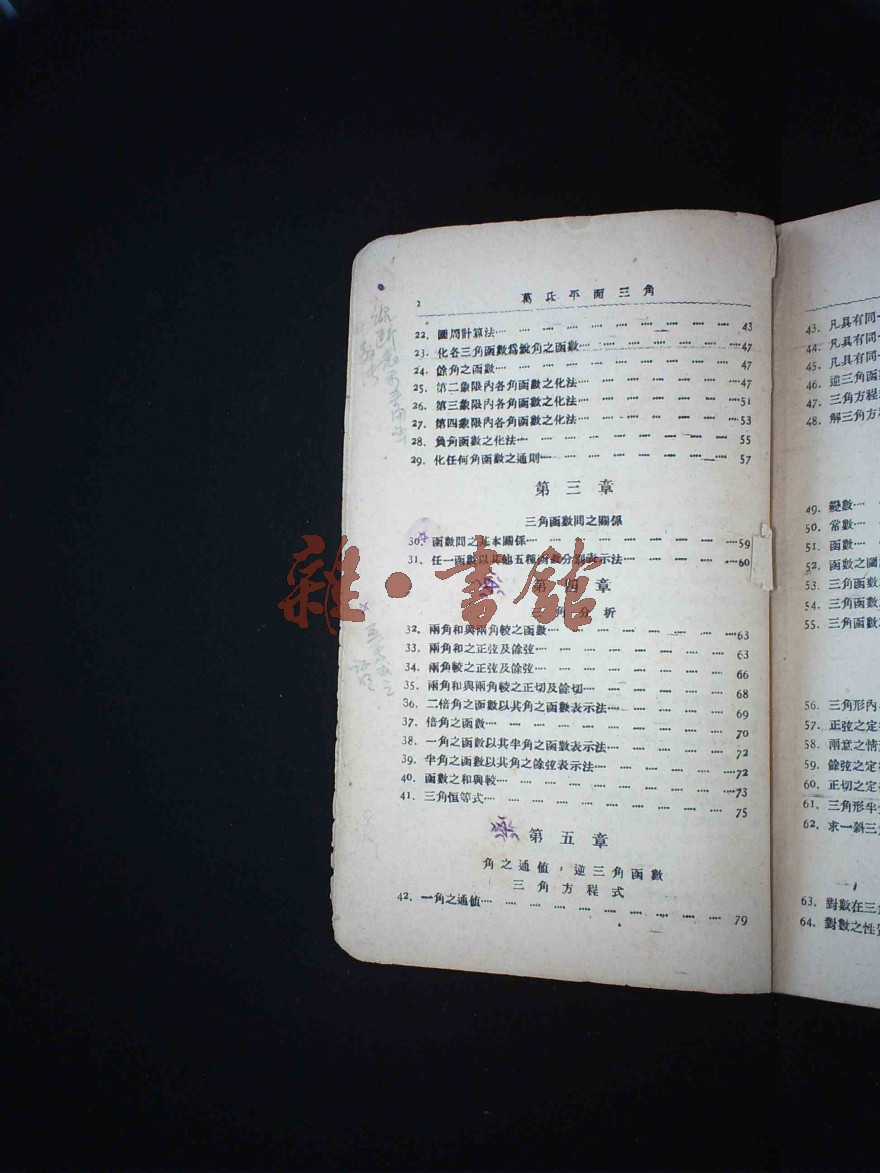 2 葛氏平面三角
22. 圖周計算法 43
23. 化各三角函數爲銳角之函數 47
24. 餘角之函數 47
25. 第二象限內各角函數之化法 47
26. 第三象限內各角函數之化法 51
27. 第四象限內各角函數之化法 53
28. 負角函數之化法 55
29. 化任何角函數之通則 57
第三章
三角函數間之關係
30. 函數間之基本關係 59
31. 任一函數以其他五種函數分別表示法 60
第四章
三角分析
32. 兩角和與兩角較之函數 63
33. 兩角和之正弦及餘弦 63
34. 兩角較之正弦及餘弦 66
35. 兩角和與兩角較之正切及餘切 68
36. 二倍角之函數以其角之函數表示法 69
37. 倍角之函數 70
38. 一角之函數以其半角之函數表示法 72
39. 半角之函數以其角之餘弦表示法 72
40. 函數之和與較 73
41. 三角恒等式 75
第五章
角之通值，逆三角函數
三角方程式
42. 一角之通值 79
雜·書館
43. 凡具有同一
44. 凡具有同一
45. 凡具有同一
46. 逆三角函
47. 三角方程
48. 解三角方
49. 變數
50. 常數
51. 函數
52. 函數之圖
53. 三角函數
54. 三角函數
55. 三角函數
56. 三角形內
57. 正弦之定
58. 兩意之情
59. 餘弦之定
60. 正切之定
61. 三角形半
62. 求一斜三
63. 對數在三角
64. 對數之性質